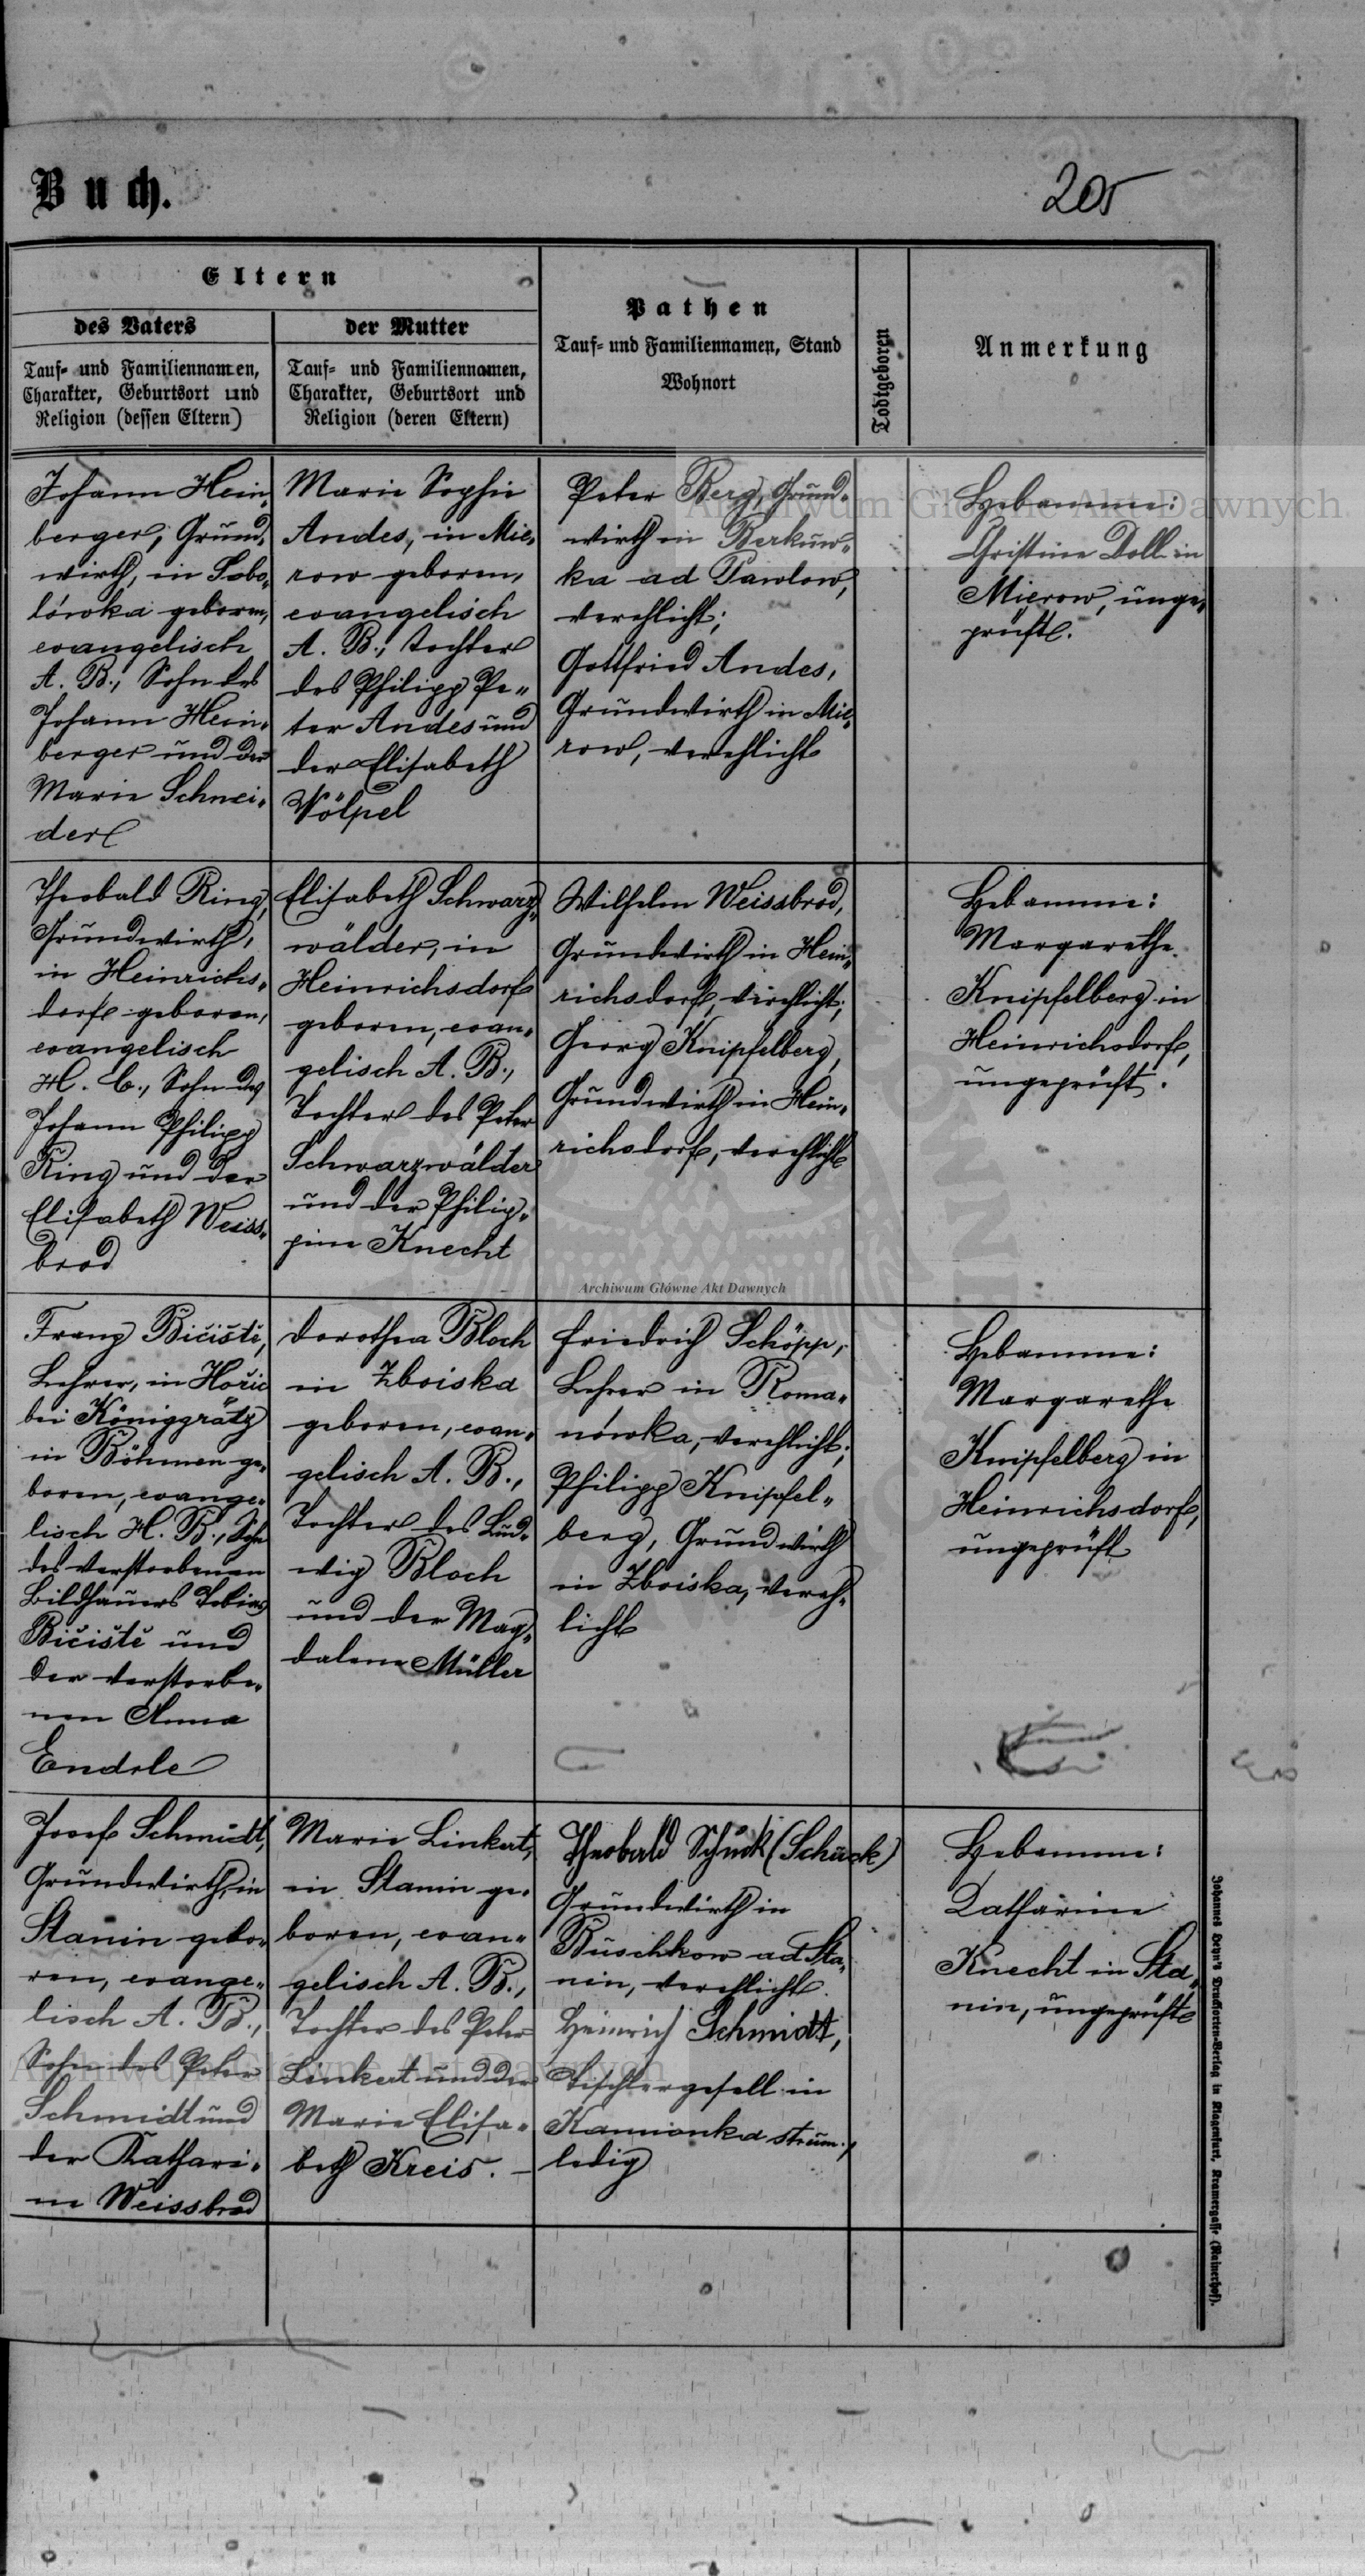 Buch.
205
Eltern
des Vaters
Tauf- und Familiennamen,
Charakter, Geburtsort und
Religion (dessen Eltern)
der Mutter
Tauf- und Familiennamen,
Charakter, Geburtsort und
Religion (deren Eltern)
Pathen
Tauf- und Familiennamen, Stand
Wohnort
Todtgeboren
Anmerkung
Johann Hein-
berger, Grund-
wirth, in Sobo-
lówka geboren,
evangelisch
A. B., Sohn des
Johann Hein-
berger und der
Marie Schnei-
der
Marie Sophie
Andes, in Mie-
row geboren,
evangelisch
A. B., Tochter
des Philipp Pe-
ter Andes und
der Elisabeth
Völpel
Peter Berg, Grund-
wirth in Berkuw-
ka ad Pawlow,
verehlicht;
Gottfried Andes,
Grundwirth in Mie-
row, verehlicht
Hebamme:
Christine Doll in
Mierow, unge-
prüft.
Theobald Ring,
Grundwirth,
in Heinrichs-
dorf geboren,
evangelisch
H. C., Sohn des
Johann Philipp
Ring und der
Elisabeth Weiss-
brod
Elisabeth Schwarz-
wälder, in
Heinrichsdorf
geboren, evan-
gelisch A. B.,
Tochter des Peter
Schwarzwälder
und der Philip-
pine Knecht
Wilhelm Weissbrod,
Grundwirth in Hein-
richsdorf, verehlicht;
Georg Knipfelberg,
Grundwirth in Hein-
richsdorf, verehlicht
Hebamme:
Margarethe
Knipfelberg in
Heinrichsdorf,
ungeprüft.
Archiwum Główne Akt Dawnych
Franz Bičiště,
Lehrer, in Hořic
bei Königgrätz
in Böhmen ge-
boren, evange-
lisch H. B., Sohn
des verstorbenen
Bildhauers Tobias
Bičiště und
der verstorbe-
nen Anna
Endrle
Dorothea Bloch
in Zboiska
geboren, evan-
gelisch A. B.,
Tochter des Lud-
wig Bloch
und der Mag-
dalena Müller
Friedrich Schöpp,
Lehrer in Roma-
nówka, verehlicht;
Philipp Knipfel-
berg, Grundwirth
in Zboiska, vereh-
licht
Hebamme:
Margarethe
Knipfelberg in
Heinrichsdorf,
ungeprüft
Josef Schmidt,
Grundwirth, in
Stanin gebo-
ren, evange-
lisch A. B.,
Sohn des Peter
Schmidt und
der Kathari-
ne Weissbrod
Marie Linkert,
in Stanin ge-
boren, evan-
gelisch A. B.,
Tochter des Peter
Linkert und der
Marie Elisa-
beth Kreis. -
Theobald Schück (Schück)
Grundwirth in
Buschkow ad Sta-
nin, verehlicht.
Heinrich Schmidt,
Tischlergesell in
Kamionka strum.,
ledig
Hebamme:
Katharine
Knecht in Sta-
nin, ungeprüft
Archiwum Główne Akt Dawnych
Archiwum Główne Akt Dawnych
Johannes Heyn's Drucksorten-Verlag in Klagenfurt, Kramergasse (Rainerhof).